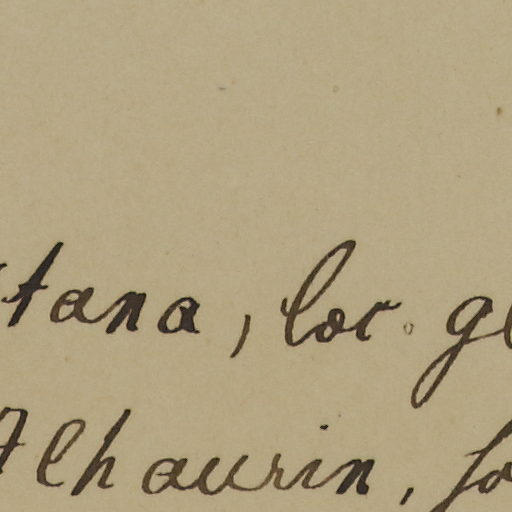 tana, loc. gl
Alhaurin, so